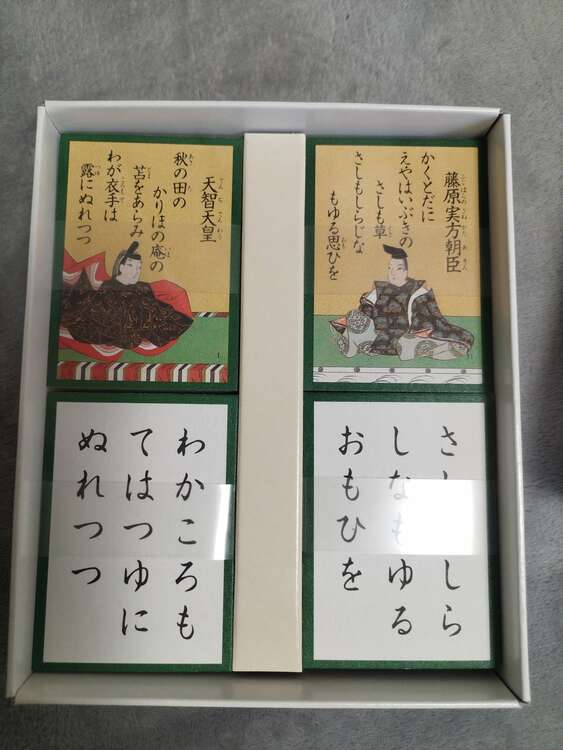 天智天皇
秋の田の
かりほの庵の
苫をあらみ
わが衣手は
露にぬれつつ
1
藤原実方朝臣
かくとだに
えやはいぶきの
さしも草
さしもしらじな
もゆる思ひを
わかころも
てはつゆに
ぬれつつ
さしもしら
しなもゆる
おもひを